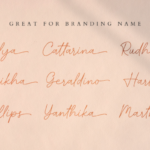 GREAT FOR BRANDING NAME
Cattarina Rudh
Geraldino Har
Yanthika Mart